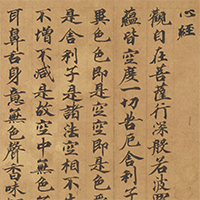 心經
觀自在菩薩行深般若波
蘊皆空度一切苦厄舍利子
異色色即是空空即是色
是舍利子是諸法空相不生
不增不減是故空中無色
耳鼻舌身意無色聲香味